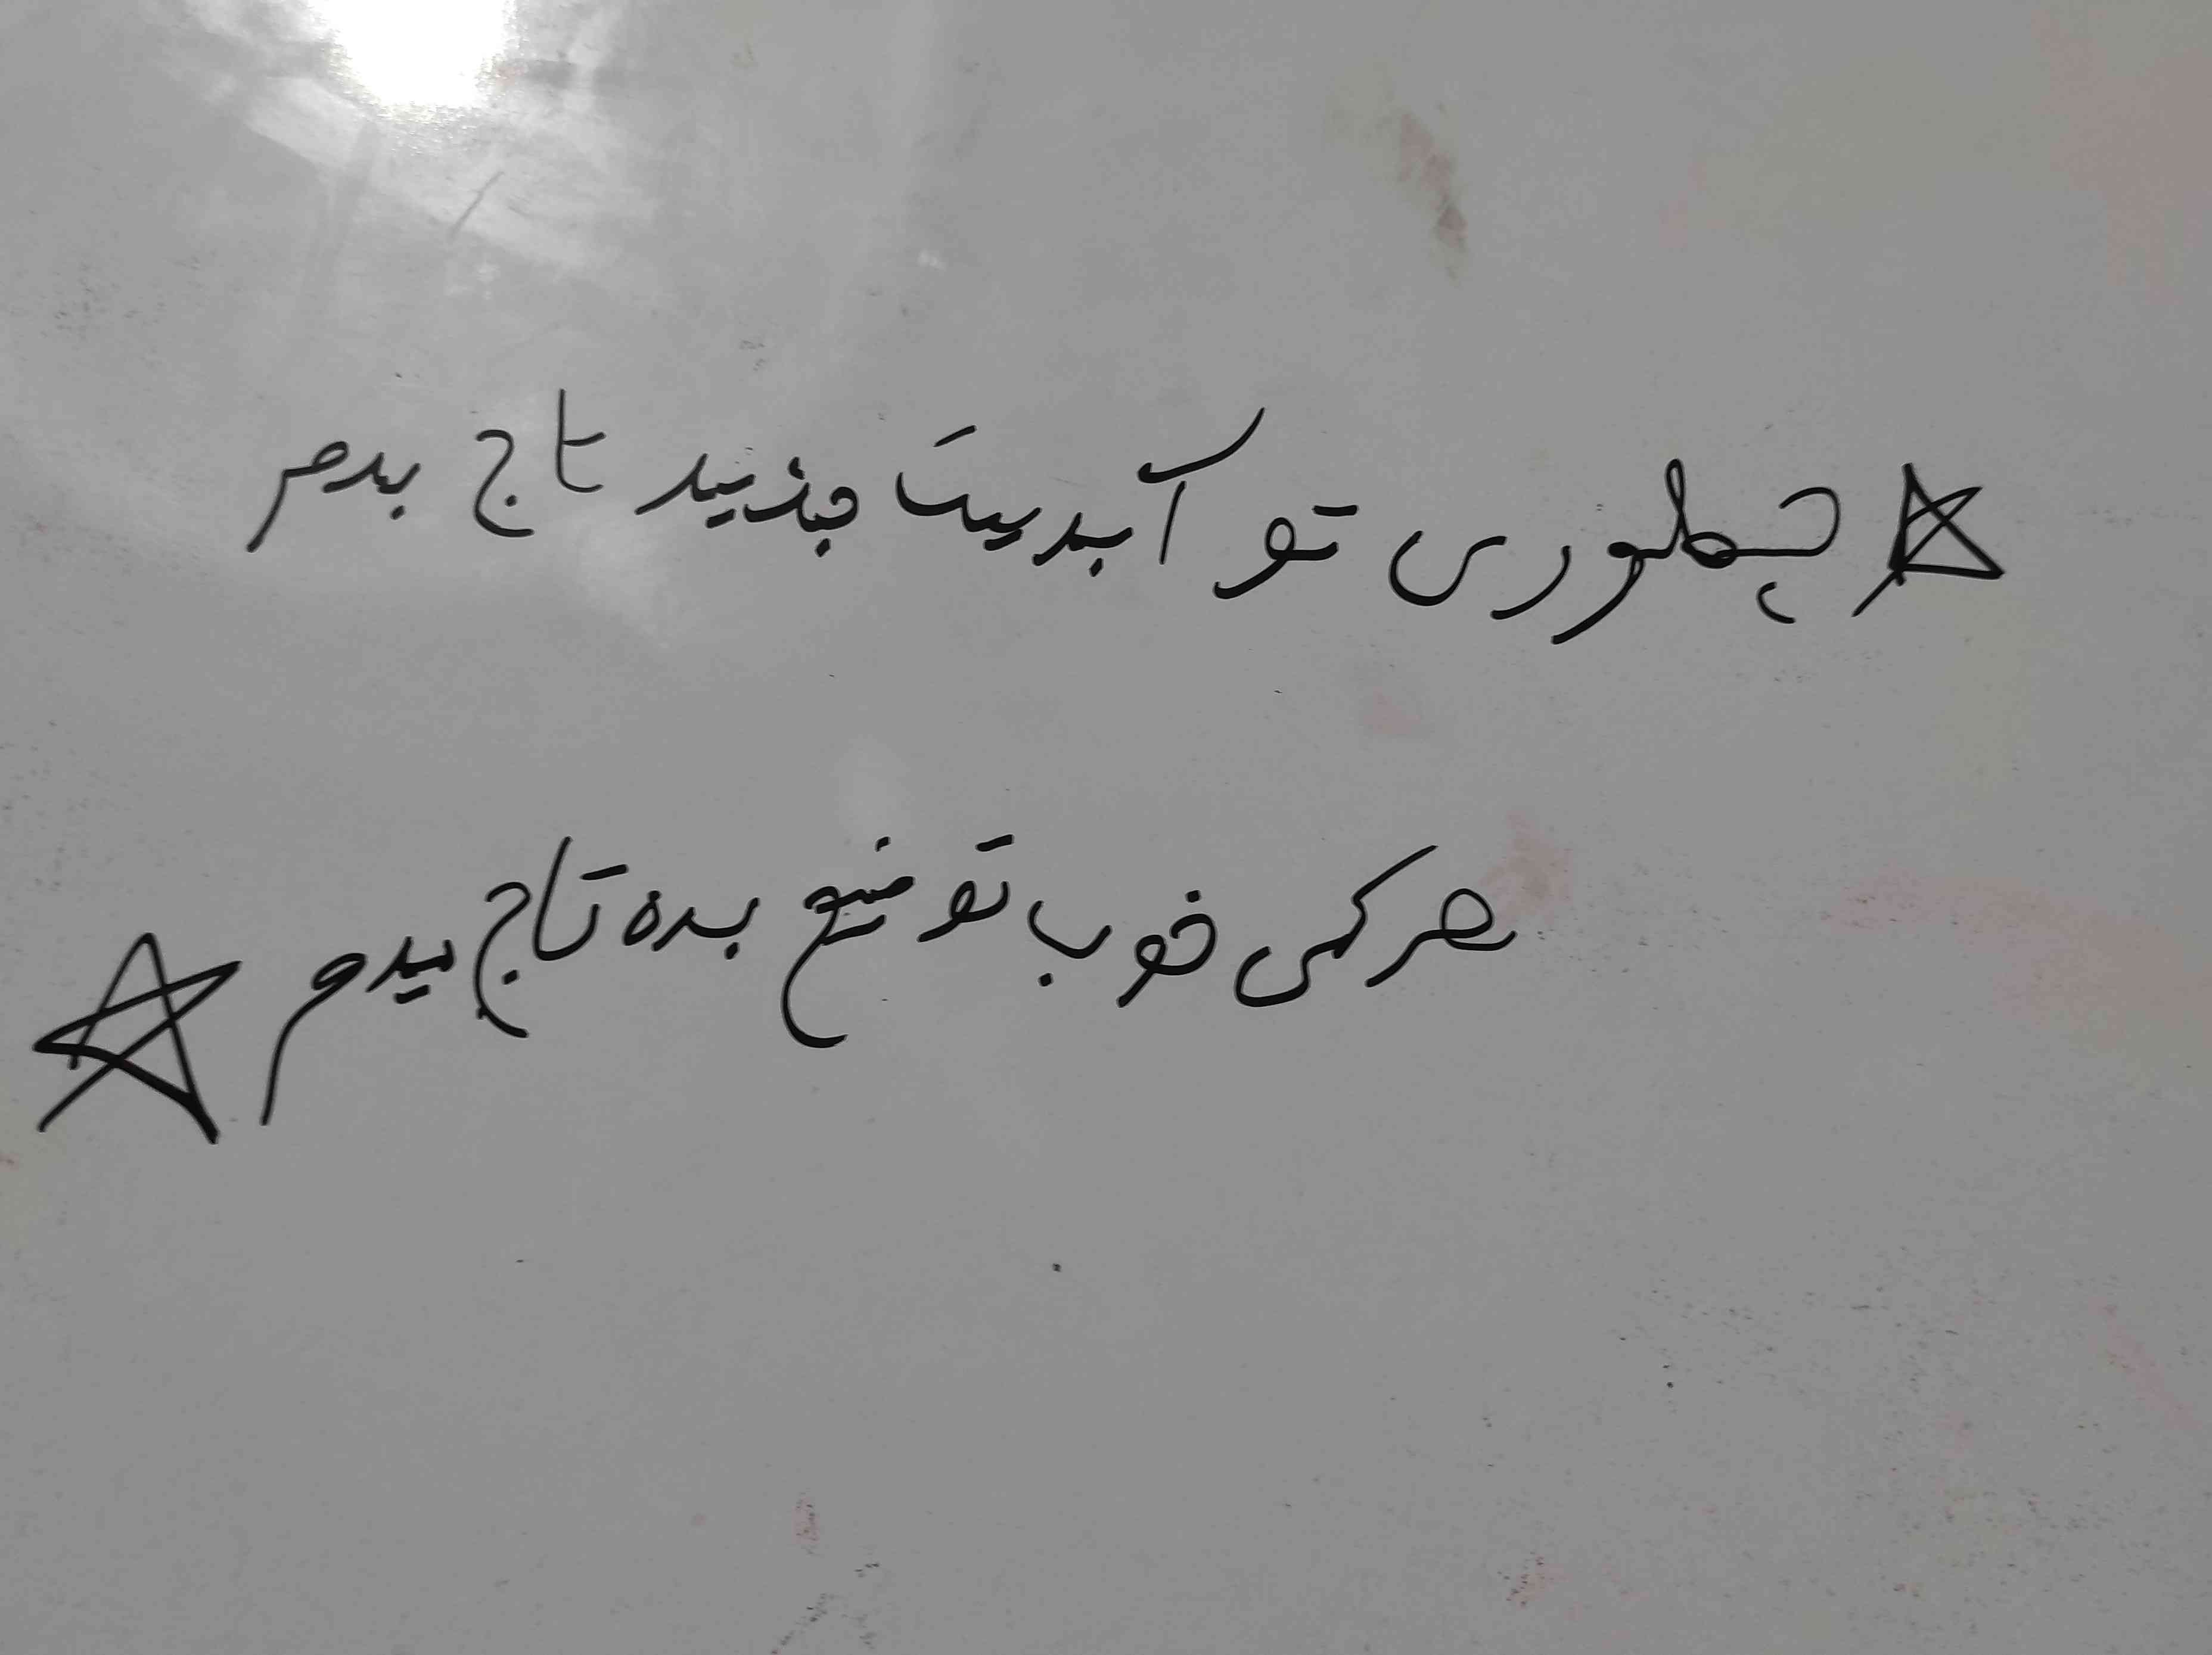 چطوری تو آبدیت جذید تاج بدم
هر کی خوب توضیع بده تاج میدم